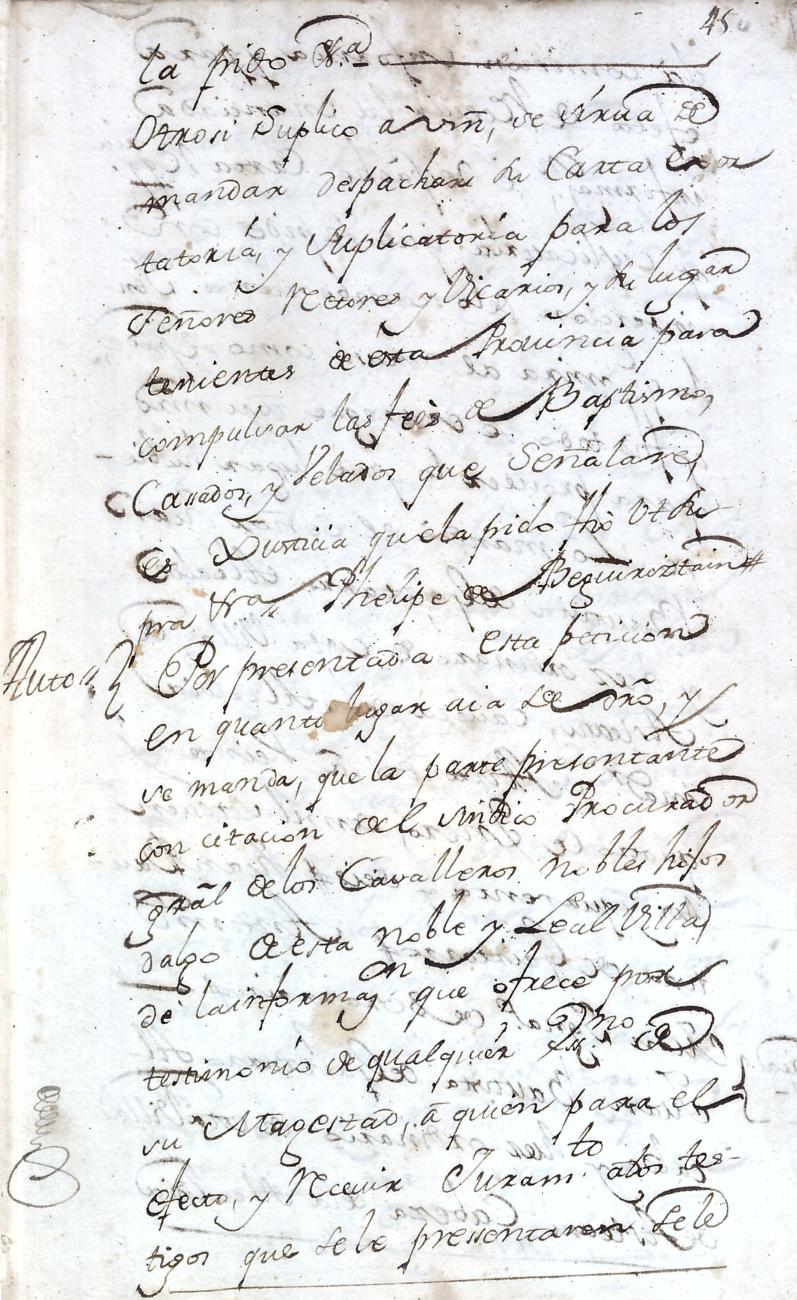 45
la pido &.a
Otrosi Suplico a vm, se sirua de
mandar despachar su Carta exor
tatoria, y suplicatoria para los
Señores Retores y Vicarios, y su lugar
tenientes de esta Prouincia para
compulsar las fees de Baptismo,
Cassados, y Velados que Señalare,
es Justicia que la pido fho Vt su
pra &ra Phelipe de Beguiriztain
Auto Por presentada esta peticion
en quanto lugar aia de dro, y
se manda, que la parte presentante
con citacion del sindico Procurador
gral de los Cavalleros nobles hijos
dalgo de esta noble y Leal Villa
de la informaon que ofrece por
testimonio de qualquier esno de
su Magestad, a quien para el
efecto, y receuir Juramto a los tes-
tigos que se le presentaren se le